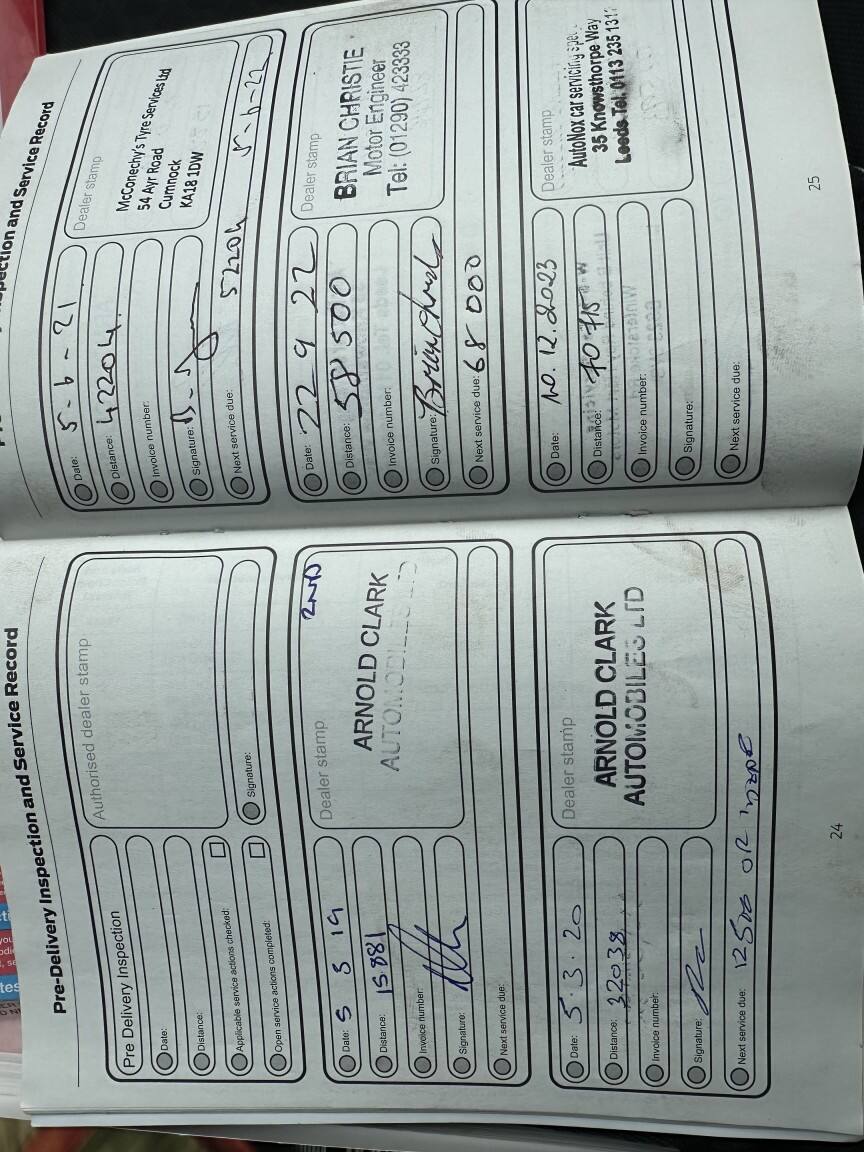 Pre-Delivery Inspection and Service Record
Pre Delivery Inspection
Date:
Distance:
Applicable service actions checked:
Open service actions completed:
Authorised dealer stamp
Signature:
Date: 5 3 19
Distance: 15881
Invoice number:
Signature:
Next service due:
Dealer stamp
2ND
ARNOLD CLARK
AUTOMOBILES LTD
Date: 5.3.20
Distance: 32038
Invoice number:
Signature:
Next service due: 12500 OR 1YEAR
Dealer stamp
ARNOLD CLARK
AUTOMOBILES LTD
24
Inspection and Service Record
Date: 5-6-21
Distance: 42204.
Invoice number:
Signature:
Next service due: 52204 5-6-22
Dealer stamp
McConechy's Tyre Services Ltd
54 Ayr Road
Cumnock
KA18 1DW
Date: 22 9 22
Distance: 58500
Invoice number:
Signature: Brian Christie
Next service due: 68 000
Dealer stamp
BRIAN CHRISTIE
Motor Engineer
Tel: (01290) 423333
Date: 10.12.2023
Distance: 70 715
Invoice number:
Signature:
Next service due:
Dealer stamp
AutoNox car servicing
35 Knowsthorpe Way
Leeds Tel. 0113 235 131
25